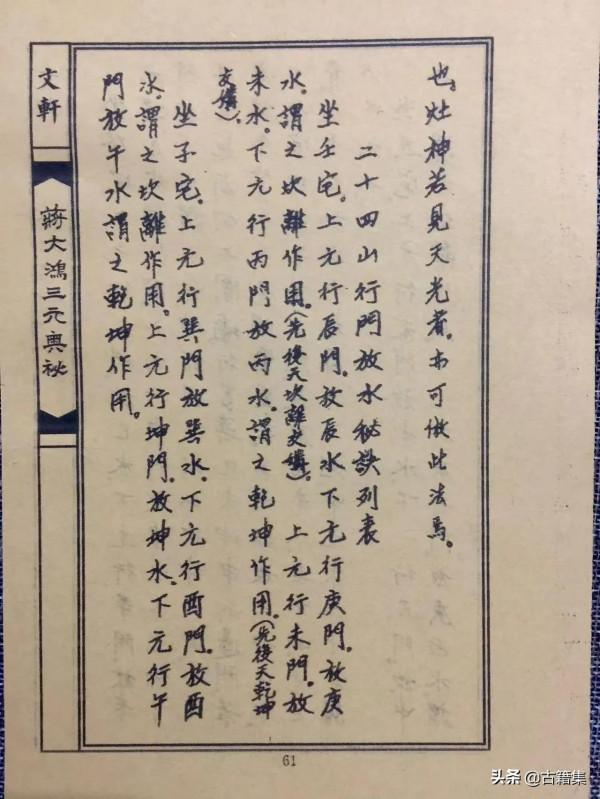 也。灶神若見天光者。亦可倣此法焉。
二十四山行門放水秘訣列表
坐壬宅。上元行辰門。放辰水下元行庚門。放庚
水。謂之坎離作用。(先後天坎離交媾)。上元行未門。放
未水。下元行丙門放丙水。謂之乾坤作用。(先後天乾坤
交媾)。
坐子宅。上元行巽門放巽水。下元行酉門。放酉
水。謂之坎離作用。上元行坤門。放坤水。下元行午
門放午水謂之乾坤作用。
文軒
蔣大鴻三元奧祕
61
头条 @古籍集